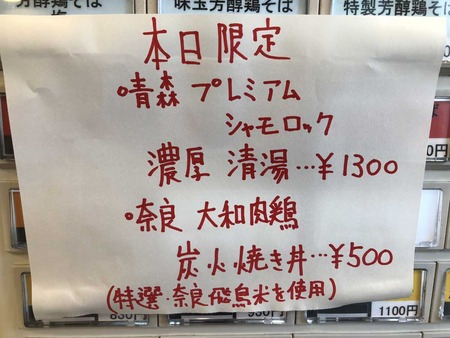 芳醇鶏そば
味玉芳醇鶏そば
特製芳醇鶏そば
本日限定
・青森 プレミアム
シャモロック
濃厚 清湯…¥1300
・奈良 大和肉鶏
炭火焼き丼…¥500
(特選・奈良飛鳥米を使用)
1100円